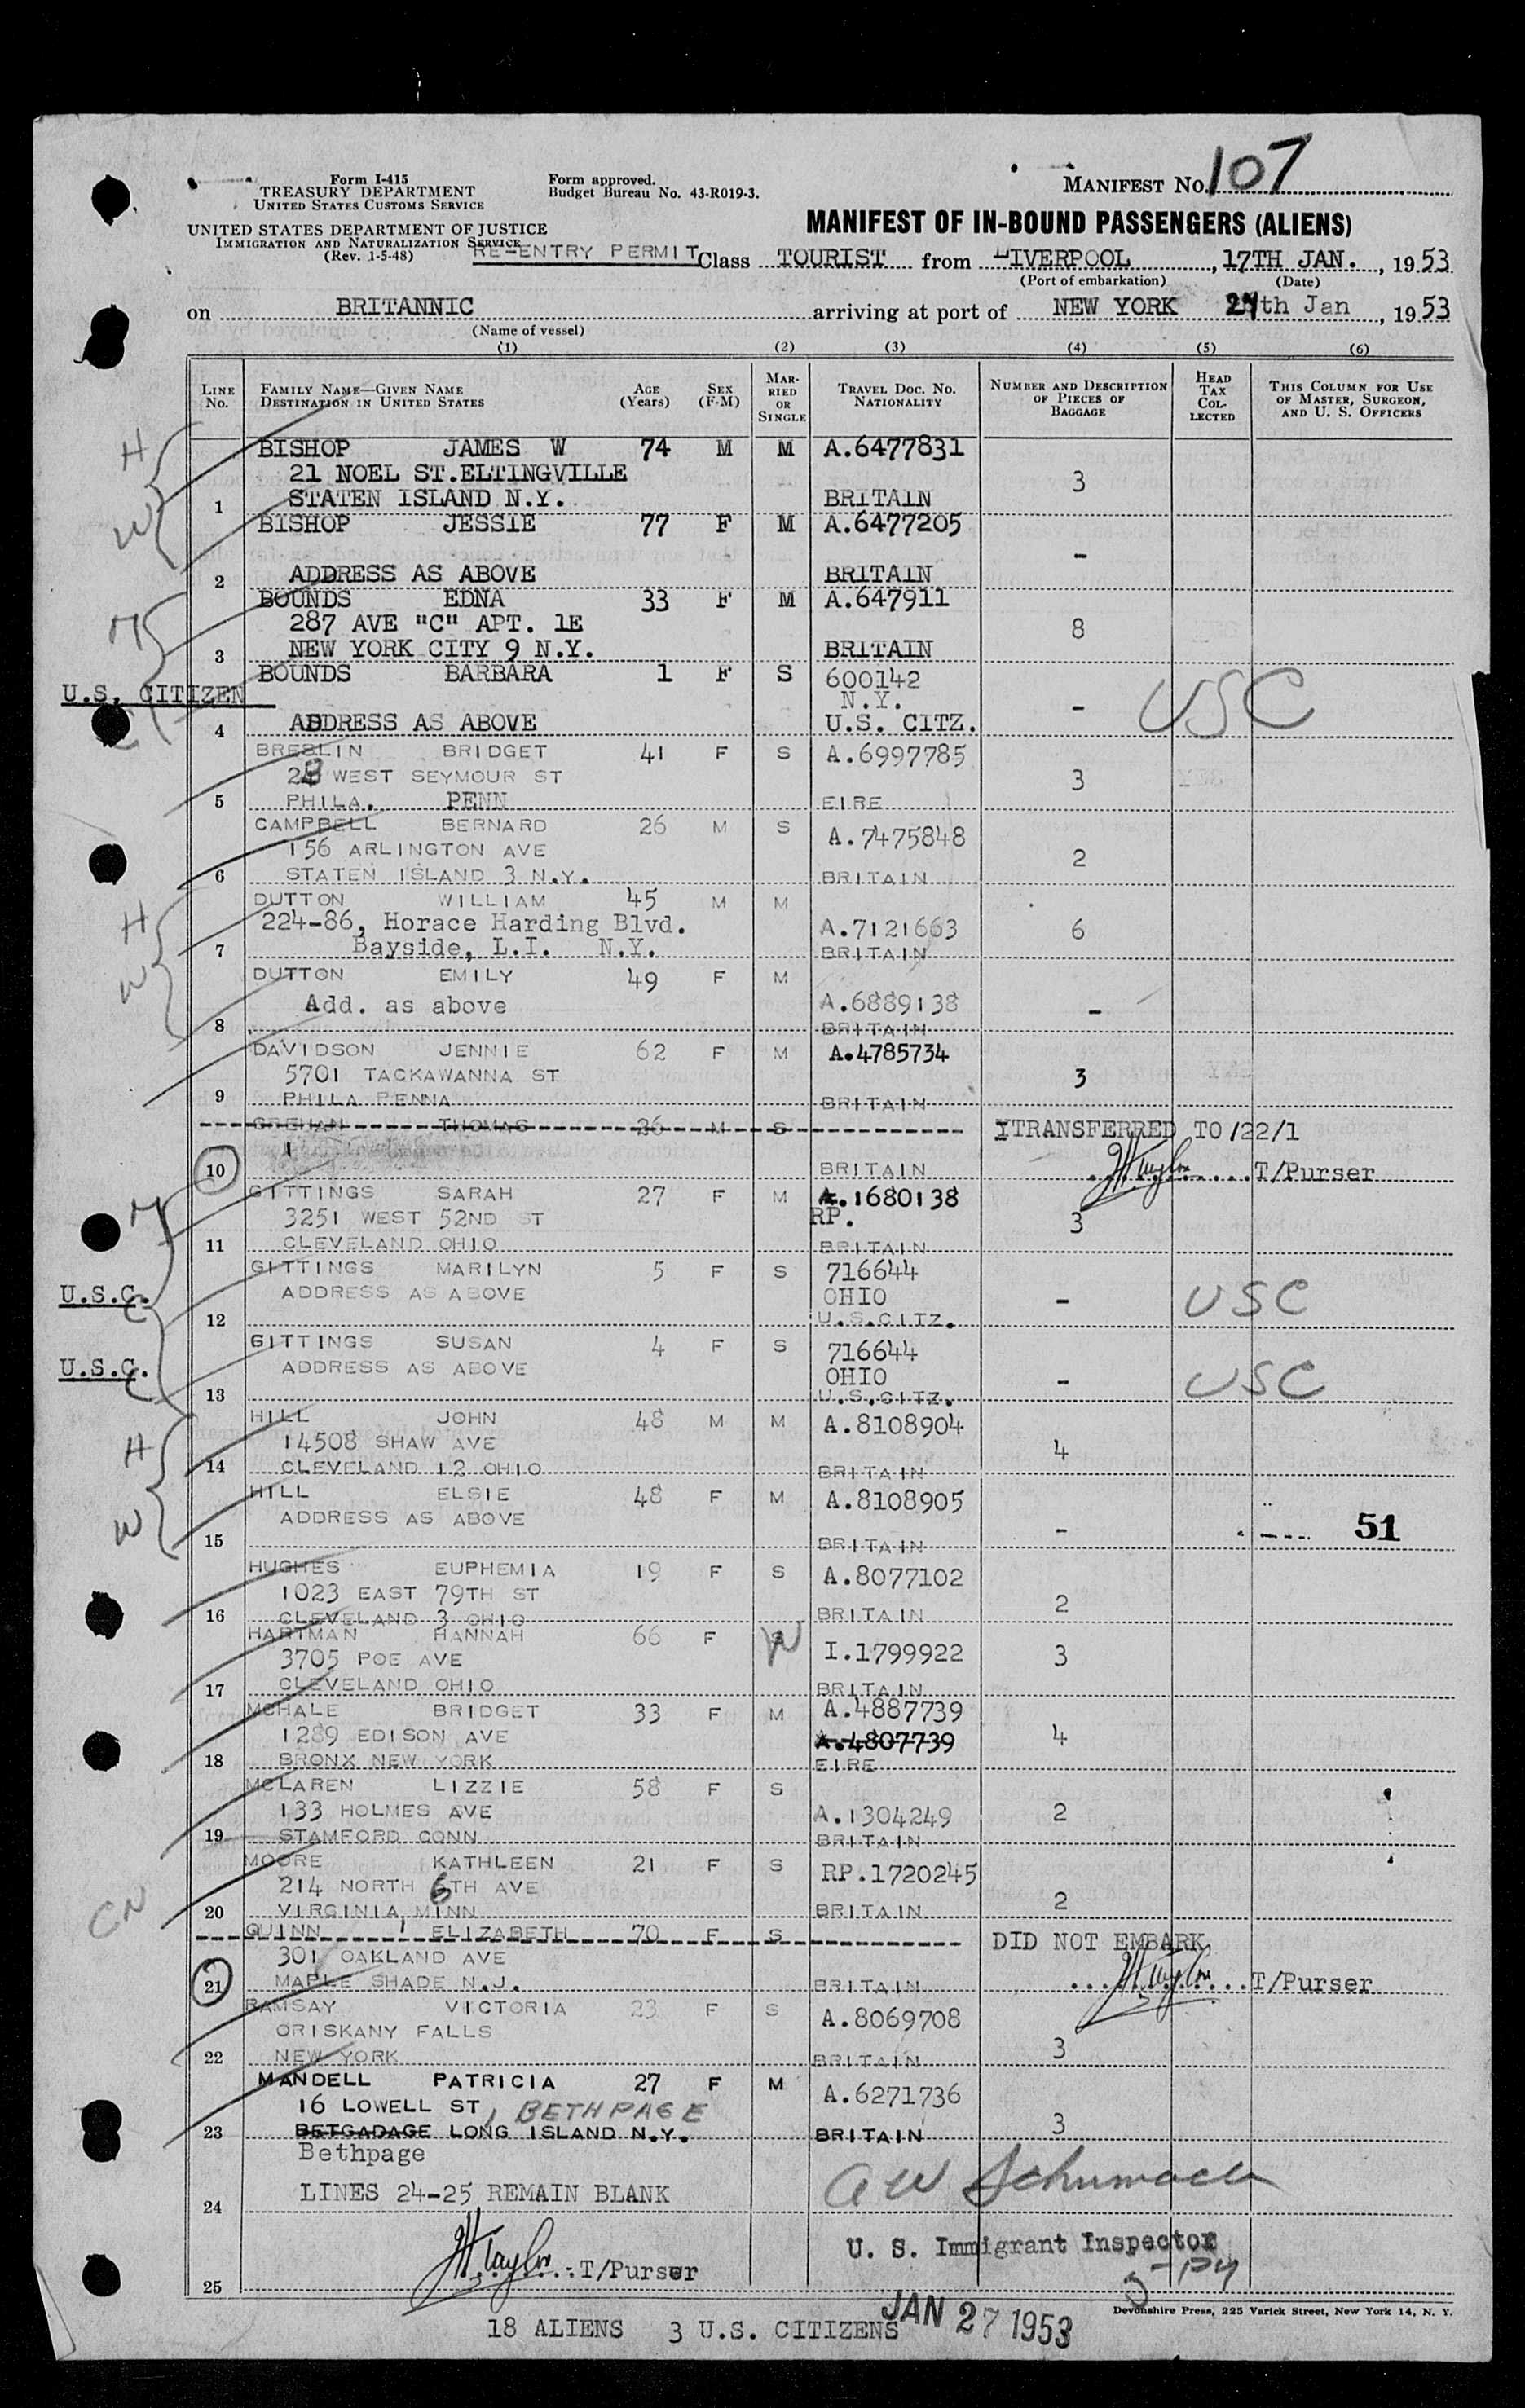 MANIFEST No. 107
Form I-415
TREASURY DEPARTMENT
UNITED STATES CUSTOMS SERVICE
Form approved.
Budget Bureau No. 43-R019-3.
UNITED STATES DEPARTMENT OF JUSTICE
IMMIGRATION AND NATURALIZATION SERVICE
(Rev. 1-5-48)
MANIFEST OF IN-BOUND PASSENGERS (ALIENS)
RE-ENTRY PERMIT Class TOURIST from LIVERPOOL, 17TH JAN., 1953
(Port of embarkation) (Date)
on BRITANNIC arriving at port of NEW YORK 27th Jan, 1953
(Name of vessel)
(1) (2) (3) (4) (5) (6)
LINE No. FAMILY NAME—GIVEN NAME DESTINATION IN UNITED STATES AGE (Years) SEX (F-M) MARRIED OR SINGLE TRAVEL DOC. No. NATIONALITY NUMBER AND DESCRIPTION OF PIECES OF BAGGAGE HEAD TAX COLLECTED THIS COLUMN FOR USE OF MASTER, SURGEON, AND U. S. OFFICERS
H BISHOP JAMES W 74 M M A.6477831
21 NOEL ST.ELTINGVILLE 3
1 STATEN ISLAND N.Y. BRITAIN
W BISHOP JESSIE 77 F M A.6477205
-
2 ADDRESS AS ABOVE BRITAIN
M BOUNDS EDNA 33 F M A.647911
287 AVE "C" APT. 1E 8
3 NEW YORK CITY 9 N.Y. BRITAIN
BOUNDS BARBARA 1 F S 600142
U.S. CITIZEN N.Y. - USC
4 ADDRESS AS ABOVE U.S. CITZ.
BRESLIN BRIDGET 41 F S A.6997785
28 WEST SEYMOUR ST 3
5 PHILA. PENN EIRE
CAMPBELL BERNARD 26 M S A.7475848
156 ARLINGTON AVE 2
6 STATEN ISLAND 3 N.Y. BRITAIN
H DUTTON WILLIAM 45 M M
224-86, Horace Harding Blvd. A.7121663 6
7 Bayside, L.I. N.Y. BRITAIN
W DUTTON EMILY 49 F M
Add. as above A.6889138 -
8 BRITAIN
DAVIDSON JENNIE 62 F M A.4785734
5701 TACKAWANNA ST 3
9 PHILA PENNA BRITAIN
GREHAN THOMAS 26 M S TRANSFERRED TO /22/1
10 BRITAIN JHTaylor T/Purser
M GITTINGS SARAH 27 F M A.1680138
3251 WEST 52ND ST RP. 3
11 CLEVELAND OHIO BRITAIN
GITTINGS MARILYN 5 F S 716644
U.S.C. C ADDRESS AS ABOVE OHIO - USC
12 U.S.CITZ.
GITTINGS SUSAN 4 F S 716644
U.S.C. C ADDRESS AS ABOVE OHIO - USC
13 U.S.CITZ.
H HILL JOHN 48 M M A.8108904
14508 SHAW AVE 4
14 CLEVELAND 12 OHIO BRITAIN
W HILL ELSIE 48 F M A.8108905
ADDRESS AS ABOVE - 51
15 BRITAIN
HUGHES EUPHEMIA 19 F S A.8077102
1023 EAST 79TH ST 2
16 CLEVELAND 3 OHIO BRITAIN
HARTMAN HANNAH 66 F W I.1799922
3705 POE AVE 3
17 CLEVELAND OHIO BRITAIN
MCHALE BRIDGET 33 F M A.4887739
1289 EDISON AVE A.4807739 4
18 BRONX NEW YORK EIRE
MCLAREN LIZZIE 58 F S
133 HOLMES AVE A.1304249 2
19 STAMFORD CONN BRITAIN
MOORE KATHLEEN 21 F S RP.1720245
CN 214 NORTH 6TH AVE 2
20 VIRGINIA MINN BRITAIN
QUINN ELIZABETH 70 F S DID NOT EMBARK
301 OAKLAND AVE
21 MAPLE SHADE N.J. BRITAIN JHTaylor T/Purser
RAMSAY VICTORIA 23 F S A.8069708
ORISKANY FALLS 3
22 NEW YORK BRITAIN
MANDELL PATRICIA 27 F M A.6271736
16 LOWELL ST, BETHPAGE 3
23 BETGADAGE LONG ISLAND N.Y. BRITAIN
Bethpage
24 LINES 24-25 REMAIN BLANK AW Schumach
U. S. Immigrant Inspector
25 JHTaylor T/Purser
Devonshire Press, 225 Varick Street, New York 14, N. Y.
18 ALIENS 3 U.S. CITIZENS JAN 27 1953